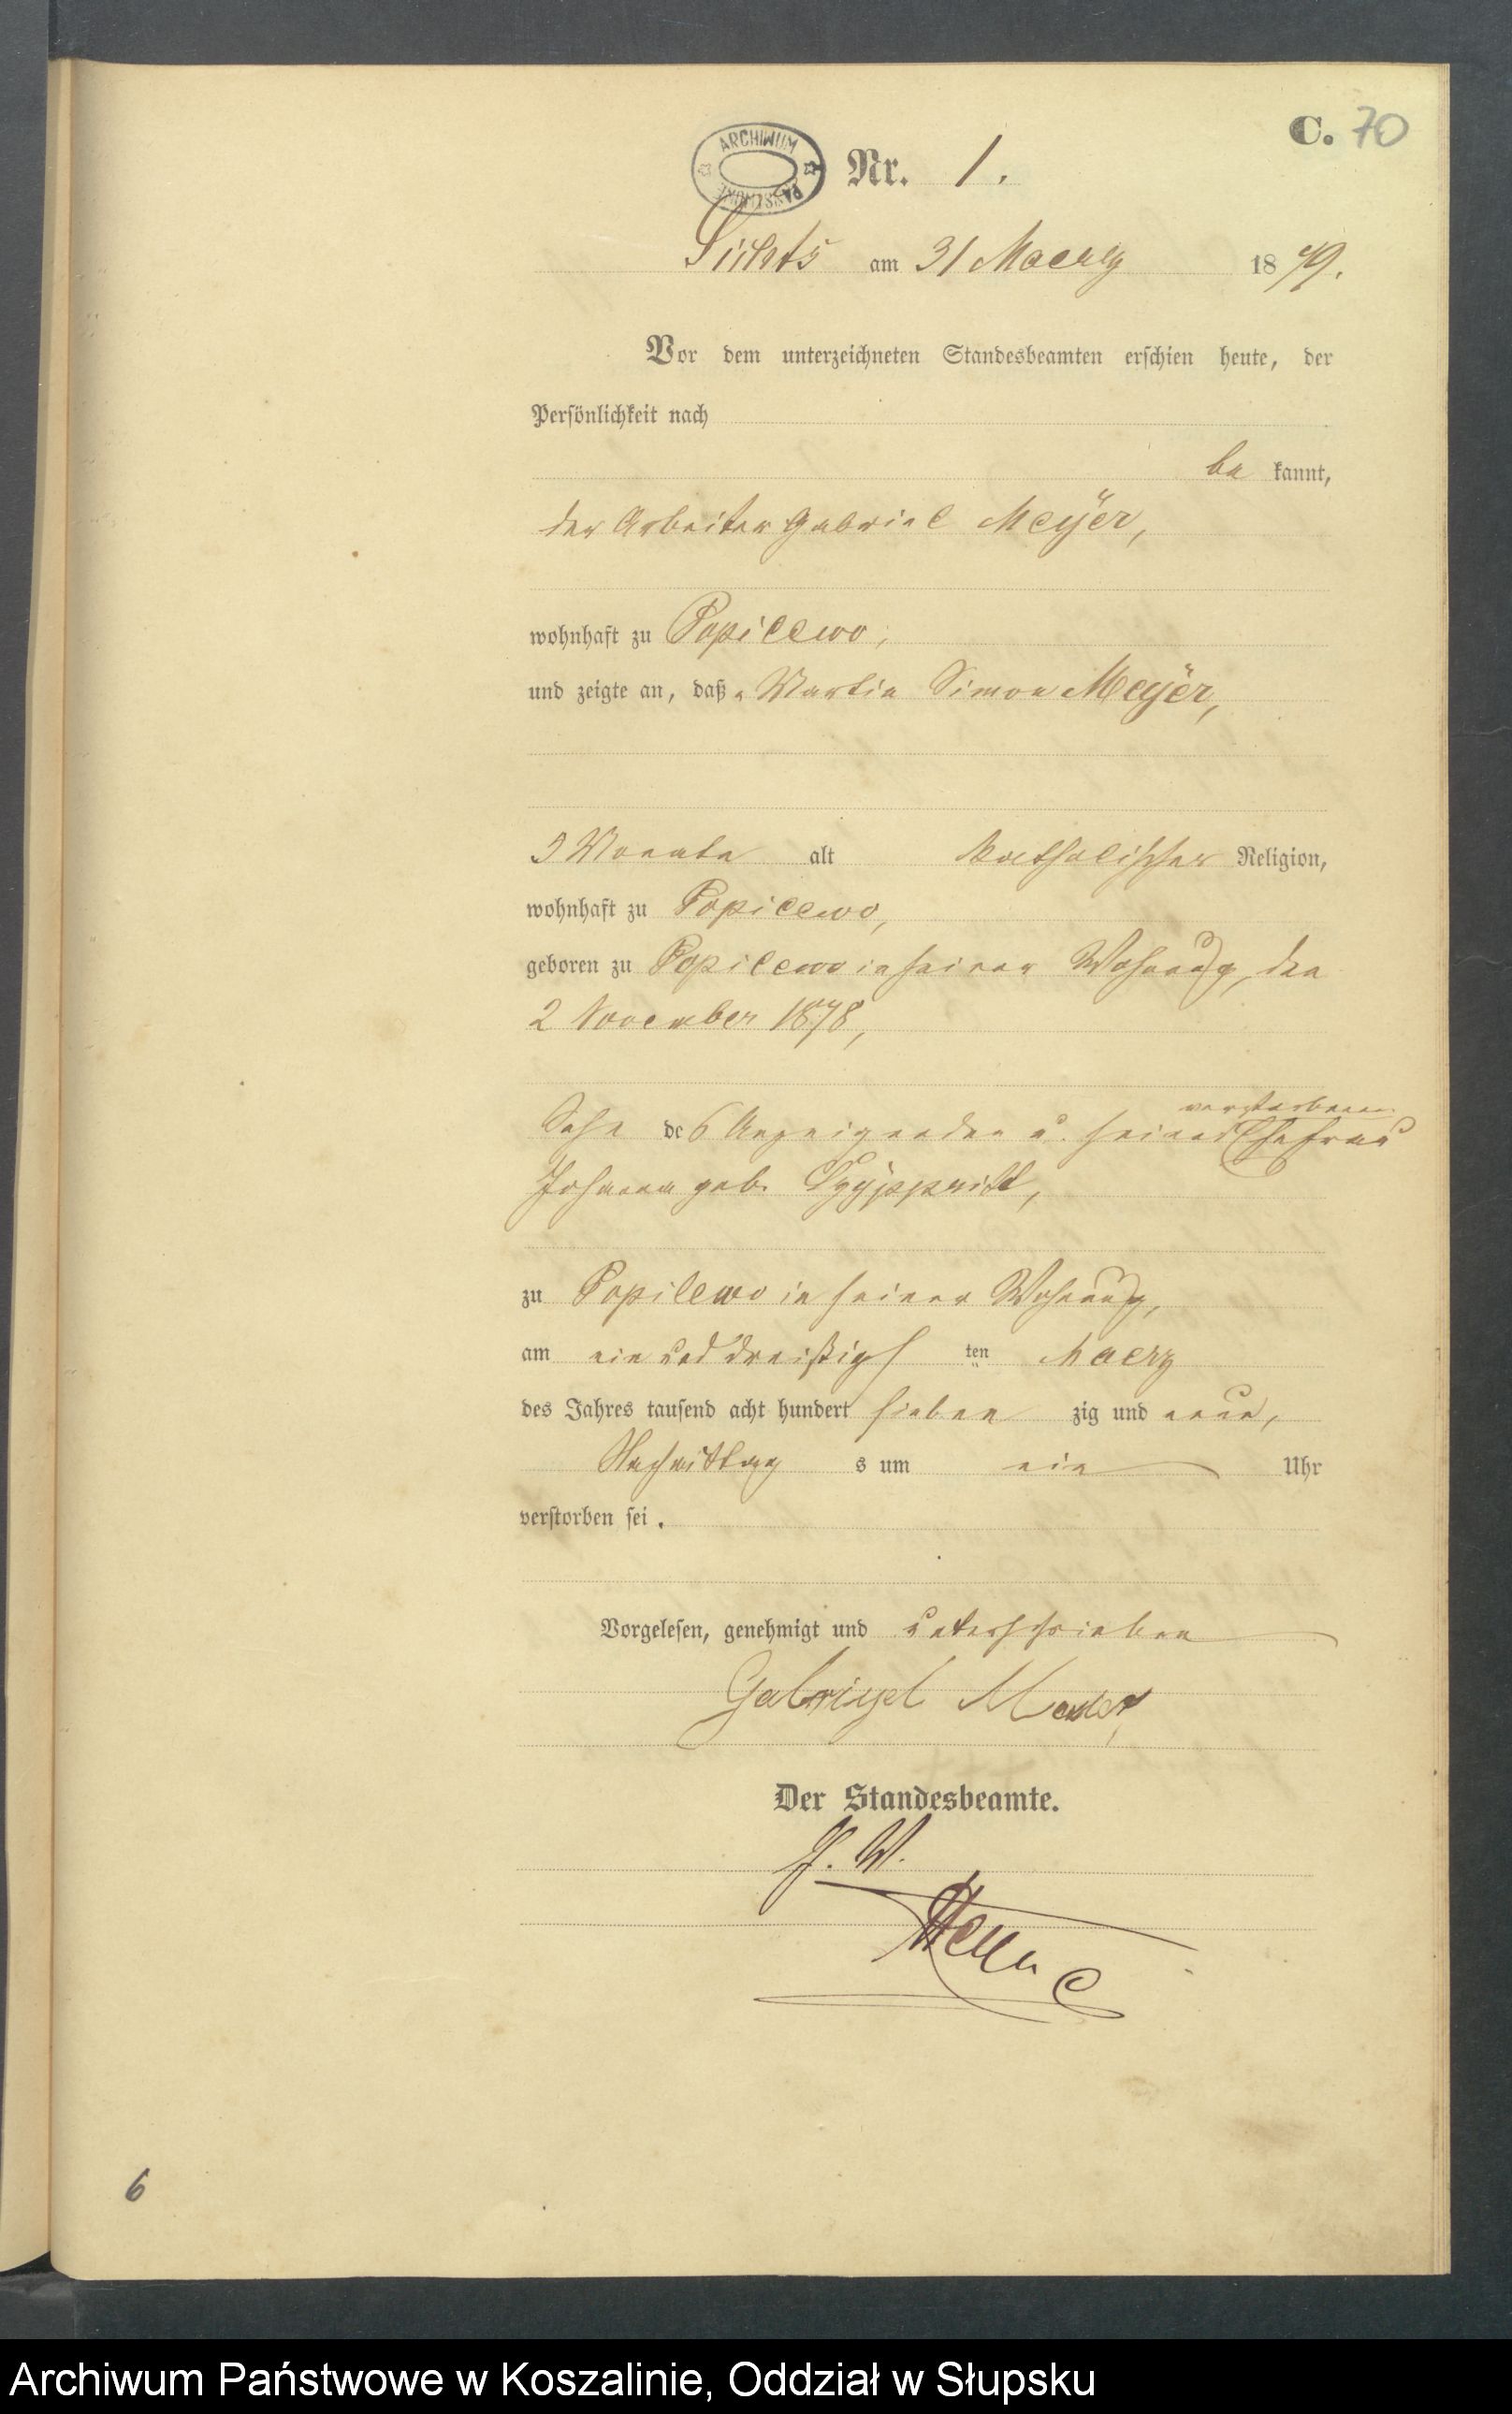 C. 70
ARCHIWUM
Nr. 1.
am 31 Maerz 1879.
Vor dem unterzeichneten Standesbeamten erschien heute, der
Persönlichkeit nach
be kannt,
der Arbeiter Gabriel Meÿer,
wohnhaft zu Popilewo,
und zeigte an, daß Martin Simon Meÿer,
Monate alt katholischer Religion,
wohnhaft zu Popilewo,
geboren zu Popilewo in seiner Wohnung, den
2 November 1878,
verstorbenen
Sohn des Anzeigenden u. seiner Ehefrau
Johanna geb.
zu Popilewo in seiner Wohnung,
am ein und dreißigsten Maerz
des Jahres tausend acht hundert sieben zig und neun,
Nachmittag s um ein Uhr
verstorben sei.
Vorgelesen, genehmigt und unterschrieben
Gabriyel
Der Standesbeamte.
6
Archiwum Państwowe w Koszalinie, Oddział w Słupsku